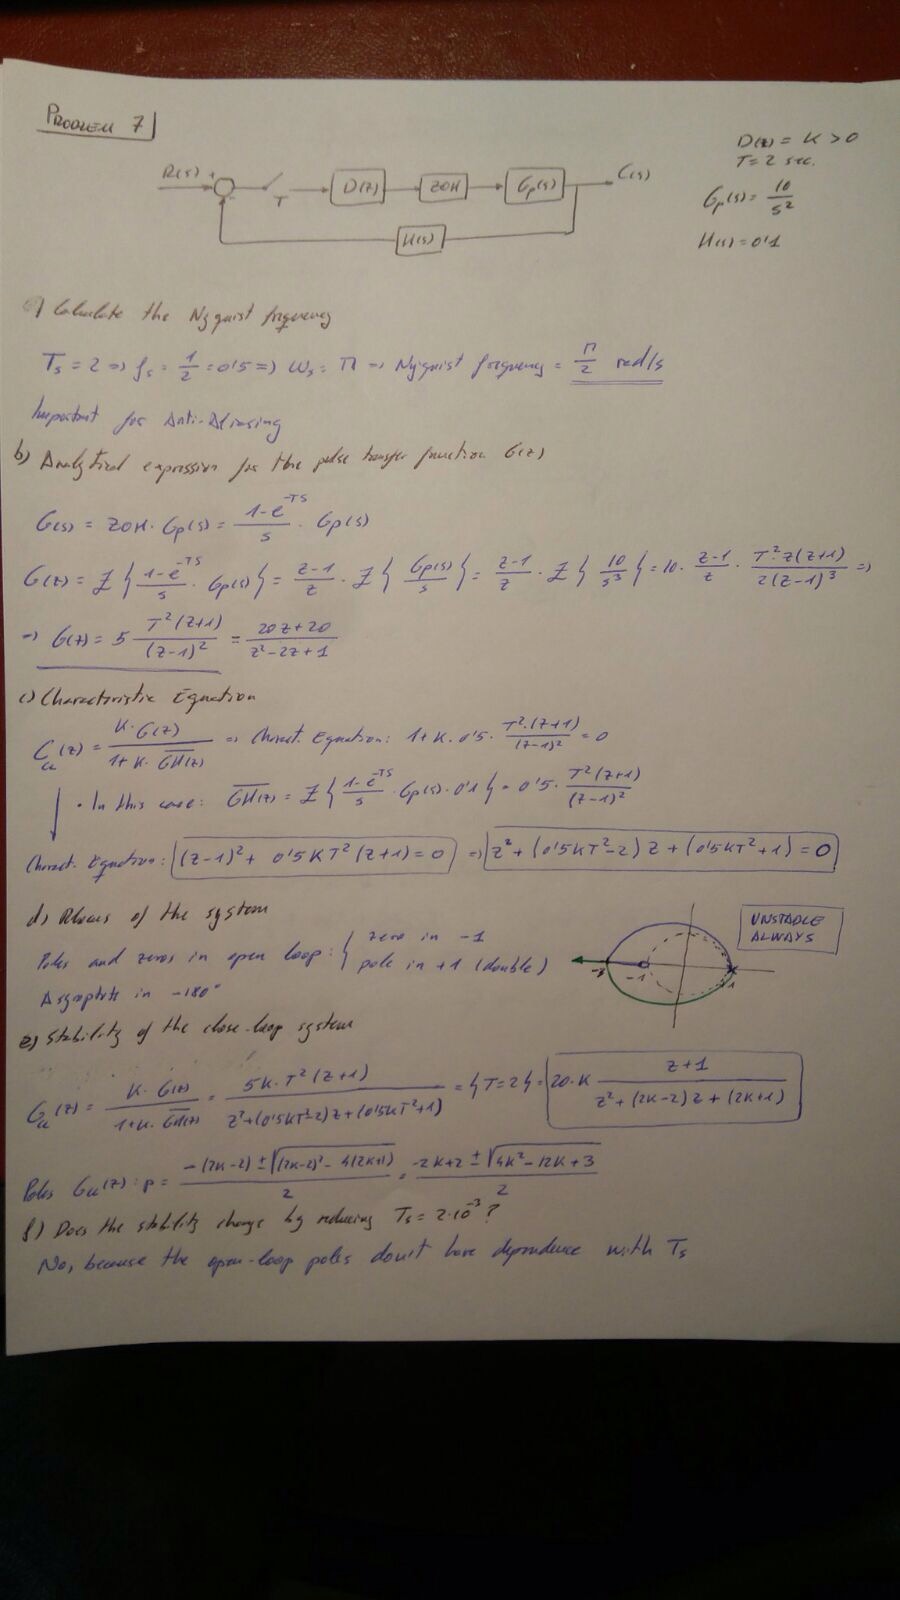 PROBLEM 7
R(s) + - T D(z) ZOH Gp(s) C(s)
H(s)
D(z) = K > 0
T = 2 sec.
Gp(s) = 10/s²
H(s) = 0'1
a) Calculate the Nyquist frequency
Ts = 2 => fs = 1/2 = 0'5 => ωs = π => Nyquist frequency = π/2 rad/s
Important for Anti-Aliasing
b) Analytical expression for the pulse transfer function G(z)
G(s) = ZOH · Gp(s) = (1-e^-TS)/s · Gp(s)
G(z) = Z{(1-e^-TS)/s · Gp(s)} = (z-1)/z · Z{Gp(s)/s} = (z-1)/z · Z{10/s³} = 10 · (z-1)/z · T²·z(z+1)/2(z-1)³ =>
=> G(z) = 5 T²(z+1)/(z-1)² = (20z+20)/(z²-2z+1)
c) Characteristic Equation
G_cl(z) = K·G(z)/(1+K·GH(z)) => Charact. Equation: 1+K·0'5·T²·(z+1)/(z-1)² = 0
· In this case: GH(z) = Z{(1-e^-TS)/s · Gp(s)·0'1} = 0'5· T²(z+1)/(z-1)²
Charact. Equation: (z-1)² + 0'5KT²(z+1) = 0 => z² + (0'5KT²-2)z + (0'5KT²+1) = 0
d) Rlocus of the system
Poles and zeros in open loop: { zero in -1
pole in +1 (double)
Asymptote in -180°
UNSTABLE ALWAYS
-3 -1 1
e) Stability of the close-loop system
G_cl(z) = K·G(z)/(1+K·GH(z)) = 5K·T²(z+1)/(z²+(0'5KT²-2)z+(0'5KT²+1)) = {T=2} = 20·K (z+1)/(z²+(2K-2)z+(2K+1))
Poles G_cl(z): p = (-(2K-2) ± √((2K-2)²-4(2K+1)))/2 = (-2K+2 ± √(4K²-12K+3))/2
f) Does the stability change by reducing Ts = 2·10^-3?
No, because the open-loop poles don't have dependence with Ts